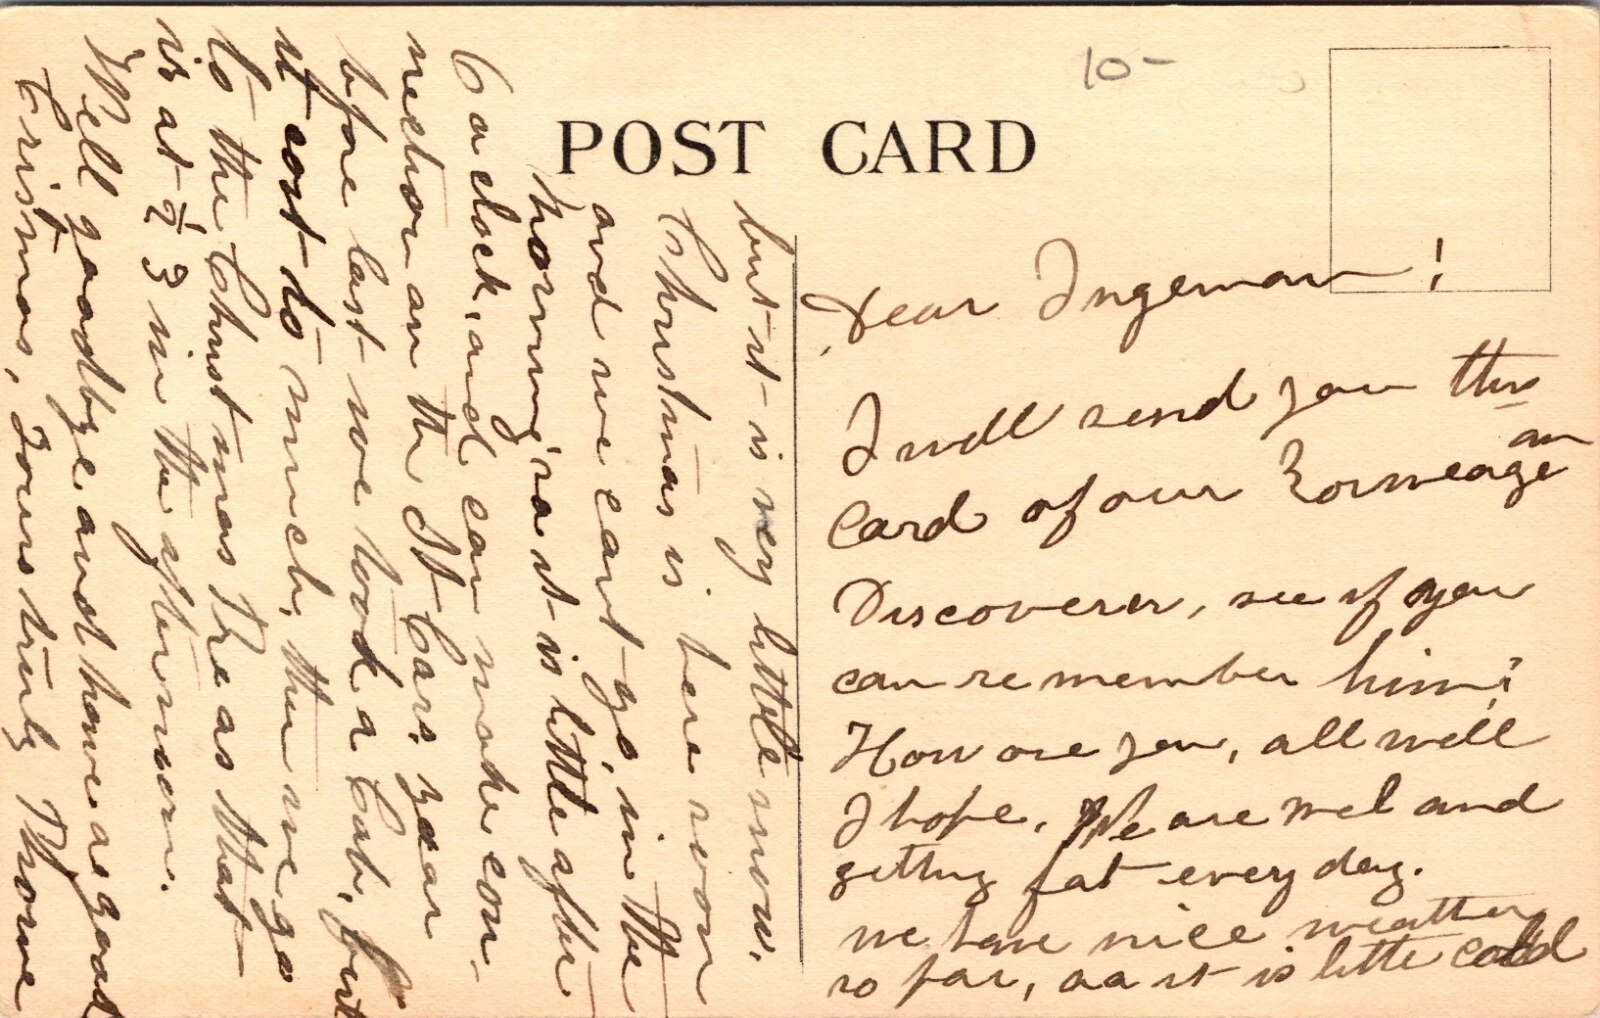 10-
POST CARD
Dear Ingeman!
I will send you this
Card of our Norweagean
Discoverer, see if you
can remember him?
How are you, all well
I hope, We are wel and
getting fat every day.
we have nice weather
so far, aa it is litte cold
but it is vey little snow.
Christmas is here soon
and we cant go, in the
morning, sa it is little after
6 a clock, and can make con-
nection on the St Cars, year
before last we took a Cab, but
it cost to much, then we go
to the Christmas Tre as that
is at 1/2 3 in the afternoon.
Well goodbye and have a good
Cristmas, Yours truly Thorne